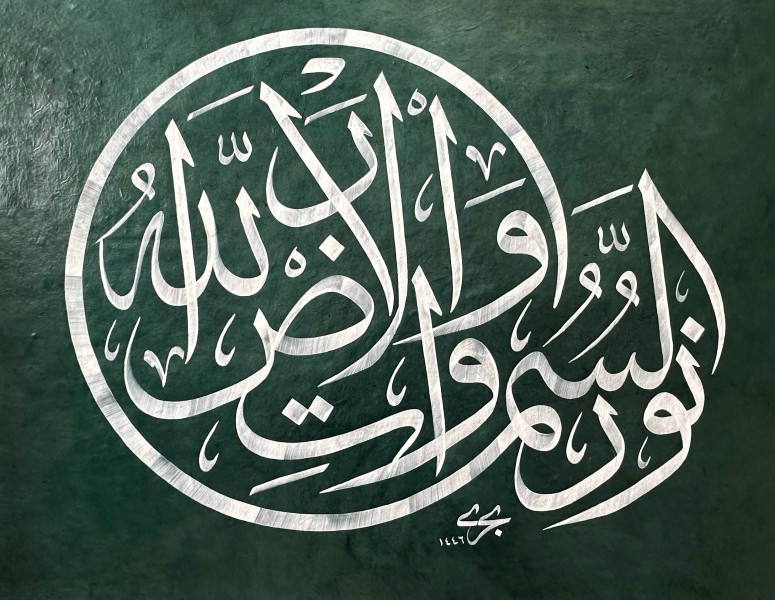 اللّٰهُ نُورُ السَّمٰوَاتِ وَالْاَرْضِ
١٤٤٦